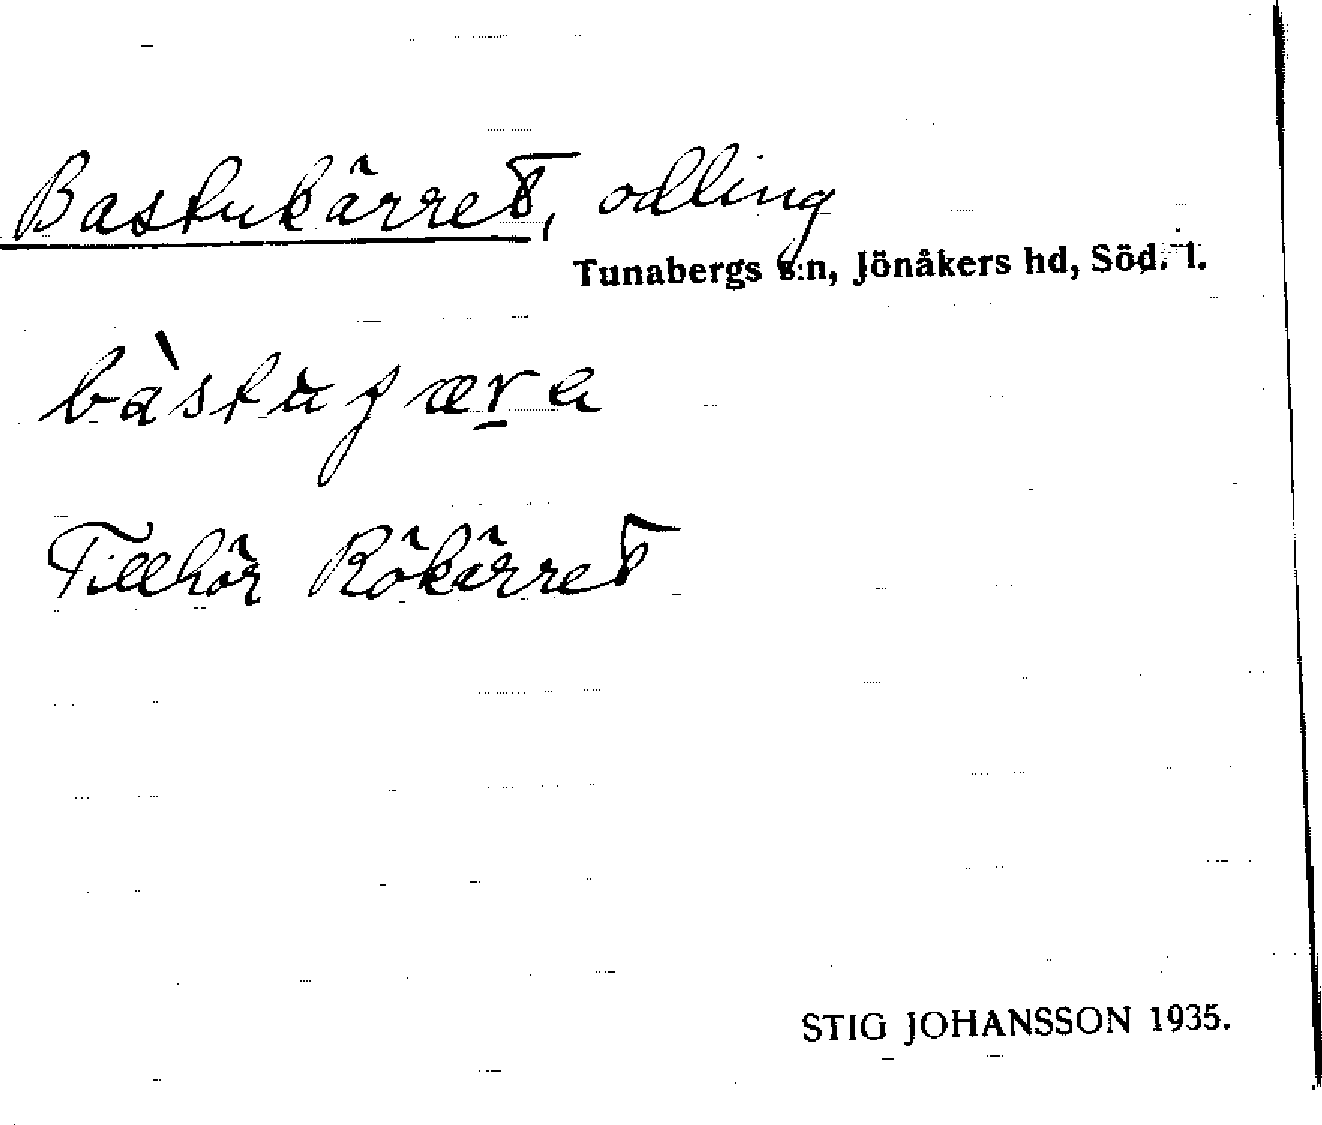 Bastukärret, odling
Tunabergs s:n, Jönåkers hd, Söd. l.
bàstuɟærɐ
Tillhör Rökärret
STIG JOHANSSON 1935.